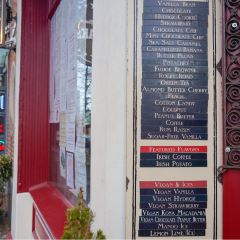 Vanilla Bean
Chocolate
Hydrox Cookie
Strawberry
Chocolate Chip
Mint Chocolate Chip
Sea Salt Caramel
Caramelized Banana
Butter Pecan
Pistachio
Fudge Brownie
Rocky Road
Green Tea
Almond Butter Cherry
Peach
Cotton Candy
Coconut
Peanut Butter
Coffee
Rum Raisin
Sugar-Free Vanilla
Featured Flavors
Irish Coffee
Irish Potato
Vegan & Ices
Vegan Vanilla
Vegan Hydrox
Vegan Strawberry
Vegan Kona Macadamia
Vegan Chocolate Peanut Butter
Mango Ice
Lemon Lime Ice